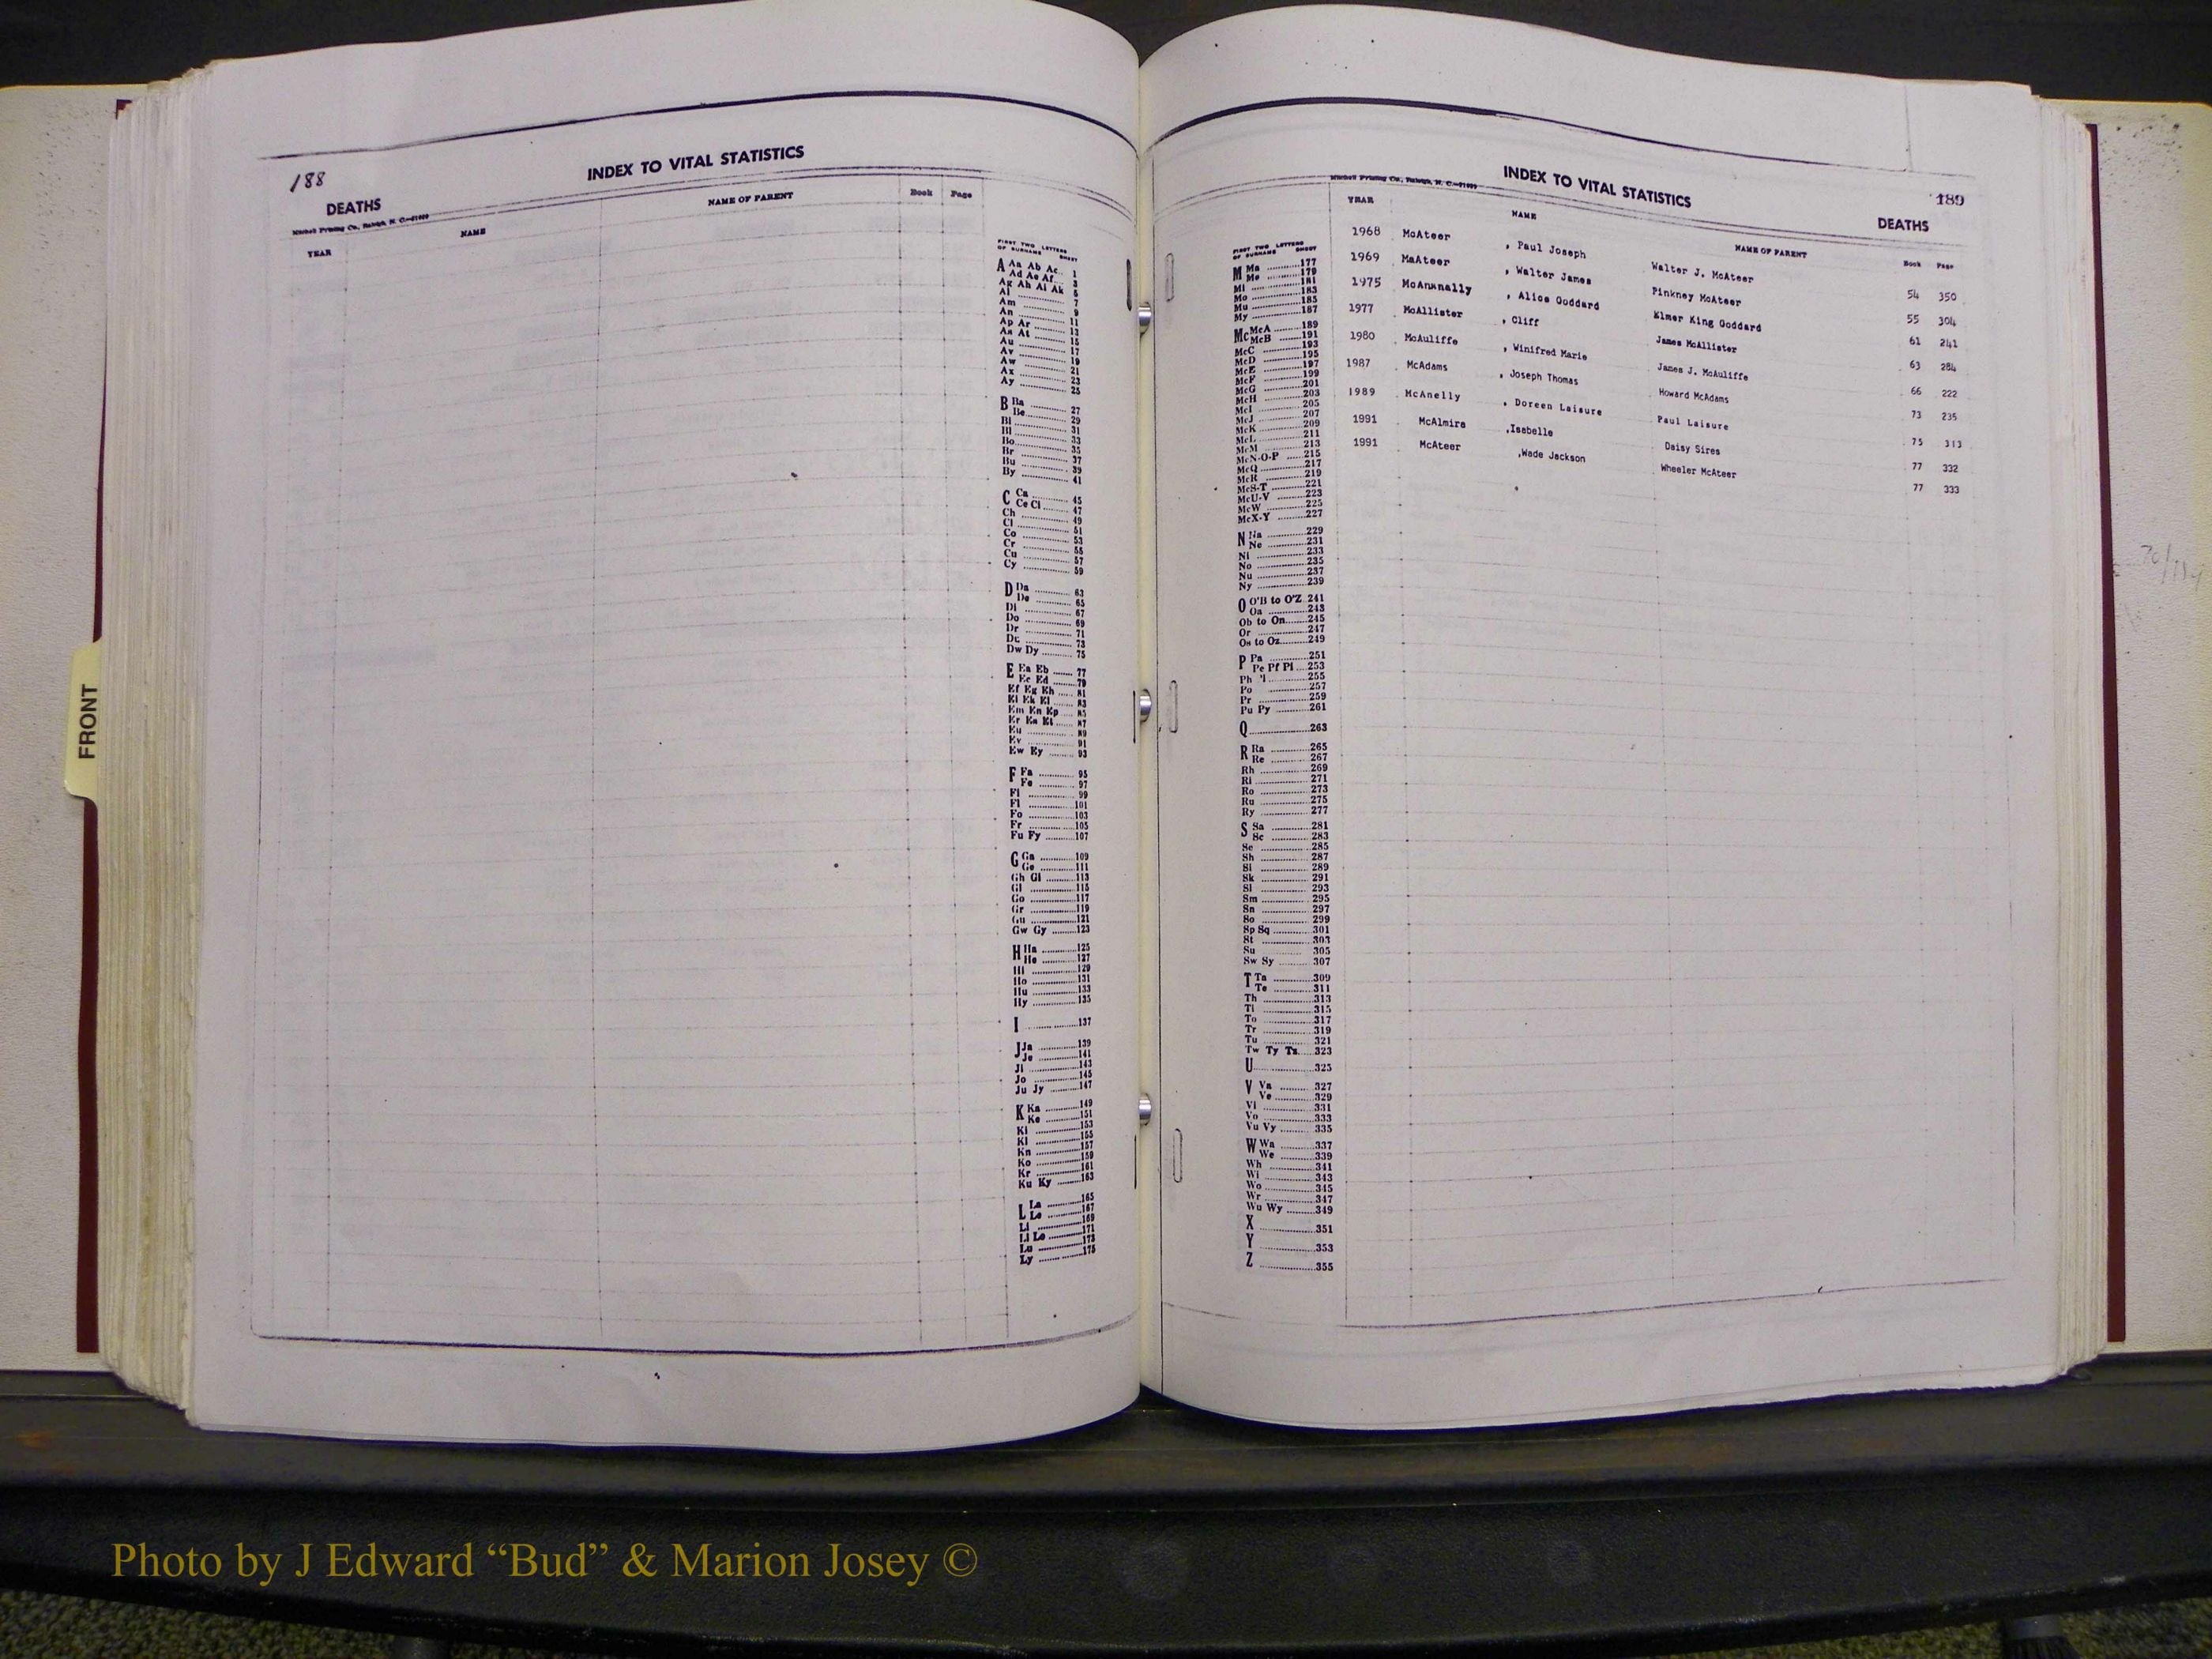 188
INDEX TO VITAL STATISTICS
DEATHS
YEAR NAME NAME OF PARENT Book Page
FIRST TWO LETTERS
OF SURNAME SHEET
A Aa Ab Ac 1
Ad Ae Af 3
Ag Ah Ai Ak 5
Al 7
Am 9
An 11
Ap Ar 13
As At 15
Au 17
Av 19
Aw 21
Ax 23
Ay 25
B Ba 27
Be 29
Bi 31
Bl 33
Bo 35
Br 37
Bu 39
By 41
C Ca 45
Ce Ci 47
Ch 49
Cl 51
Co 53
Cr 55
Cu 57
Cy 59
D Da 63
De 65
Di 67
Do 69
Dr 71
Du 73
Dw Dy 75
E Ea Eb 77
Ec Ed 79
Ef Eg Eh 81
Ei Ek El 83
Em En Ep 85
Er Es Et 87
Eu 89
Ev 91
Ew Ey 93
F Fa 95
Fe 97
Fi 99
Fl 101
Fo 103
Fr 105
Fu Fy 107
G Ga 109
Ge 111
Gh Gi 113
Gl 115
Go 117
Gr 119
Gu 121
Gw Gy 123
H Ha 125
He 127
Hi 129
Ho 131
Hu 133
Hy 135
I 137
J Ja 139
Je 141
Ji 143
Jo 145
Ju Jy 147
K Ka 149
Ke 151
Ki 153
Kl 155
Kn 157
Ko 159
Kr 161
Ku Ky 163
L La 165
Le 167
Li 169
Ll Lo 171
Lu 173
Ly 175
FRONT
INDEX TO VITAL STATISTICS
189
DEATHS
Mitchell Printing Co., Raleigh, N. C.
YEAR NAME NAME OF PARENT Book Page
1968 McAteer , Paul Joseph Walter J. McAteer 54 350
1969 MaAteer , Walter James Pinkney McAteer 55 304
1975 McAnunally , Alice Goddard Elmer King Goddard 61 241
1977 McAllister , Cliff James McAllister 63 284
1980 McAuliffe , Winifred Marie James J. McAuliffe 66 222
1987 McAdams , Joseph Thomas Howard McAdams 73 235
1989 McAnelly , Doreen Laisure Paul Laisure 75 313
1991 McAlmira ,Isabelle Daisy Sires 77 332
1991 McAteer ,Wade Jackson Wheeler McAteer 77 333
FIRST TWO LETTERS
OF SURNAME SHEET
M Ma 177
Me 179
Mi 181
Mo 183
Mu 185
My 187
Mc McA 189
McB 191
McC 193
McD 195
McE 197
McF 199
McG 201
McH 203
McI 205
McJ 207
McK 209
McL 211
McM 213
McN-O-P 215
McQ 217
McR 219
McS-T 221
McU-V 223
McW 225
McX-Y 227
N Na 229
Ne 231
Ni 233
No 235
Nu 237
Ny 239
O O'B to O'Z 241
Oa 243
Ob to On 245
Or 247
Os to Oz 249
P Pa 251
Pe Pf Pi 253
Ph Pl 255
Po 257
Pr 259
Pu Py 261
Q 263
R Ra 265
Re 267
Rh 269
Ri 271
Ro 273
Ru 275
Ry 277
S Sa 281
Sc 283
Se 285
Sh 287
Si 289
Sk 291
Sl 293
Sm 295
Sn 297
So 299
Sp Sq 301
St 303
Su 305
Sw Sy 307
T Ta 309
Te 311
Th 313
Ti 315
To 317
Tr 319
Tu 321
Tw Ty Tz 323
U 325
V Va 327
Ve 329
Vi 331
Vo 333
Vu Vy 335
W Wa 337
We 339
Wh 341
Wi 343
Wo 345
Wr 347
Wu Wy 349
X 351
Y 353
Z 355
Photo by J Edward “Bud” & Marion Josey ©